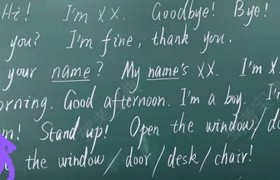 Hi! I'm XX. Goodbye! Bye!
you? I'm fine, thank you.
your name? My name's XX. I'm X
orning. Good afternoon. I'm a boy. I'm
! Stand up! Open the window/do
the window/door/desk/chair!